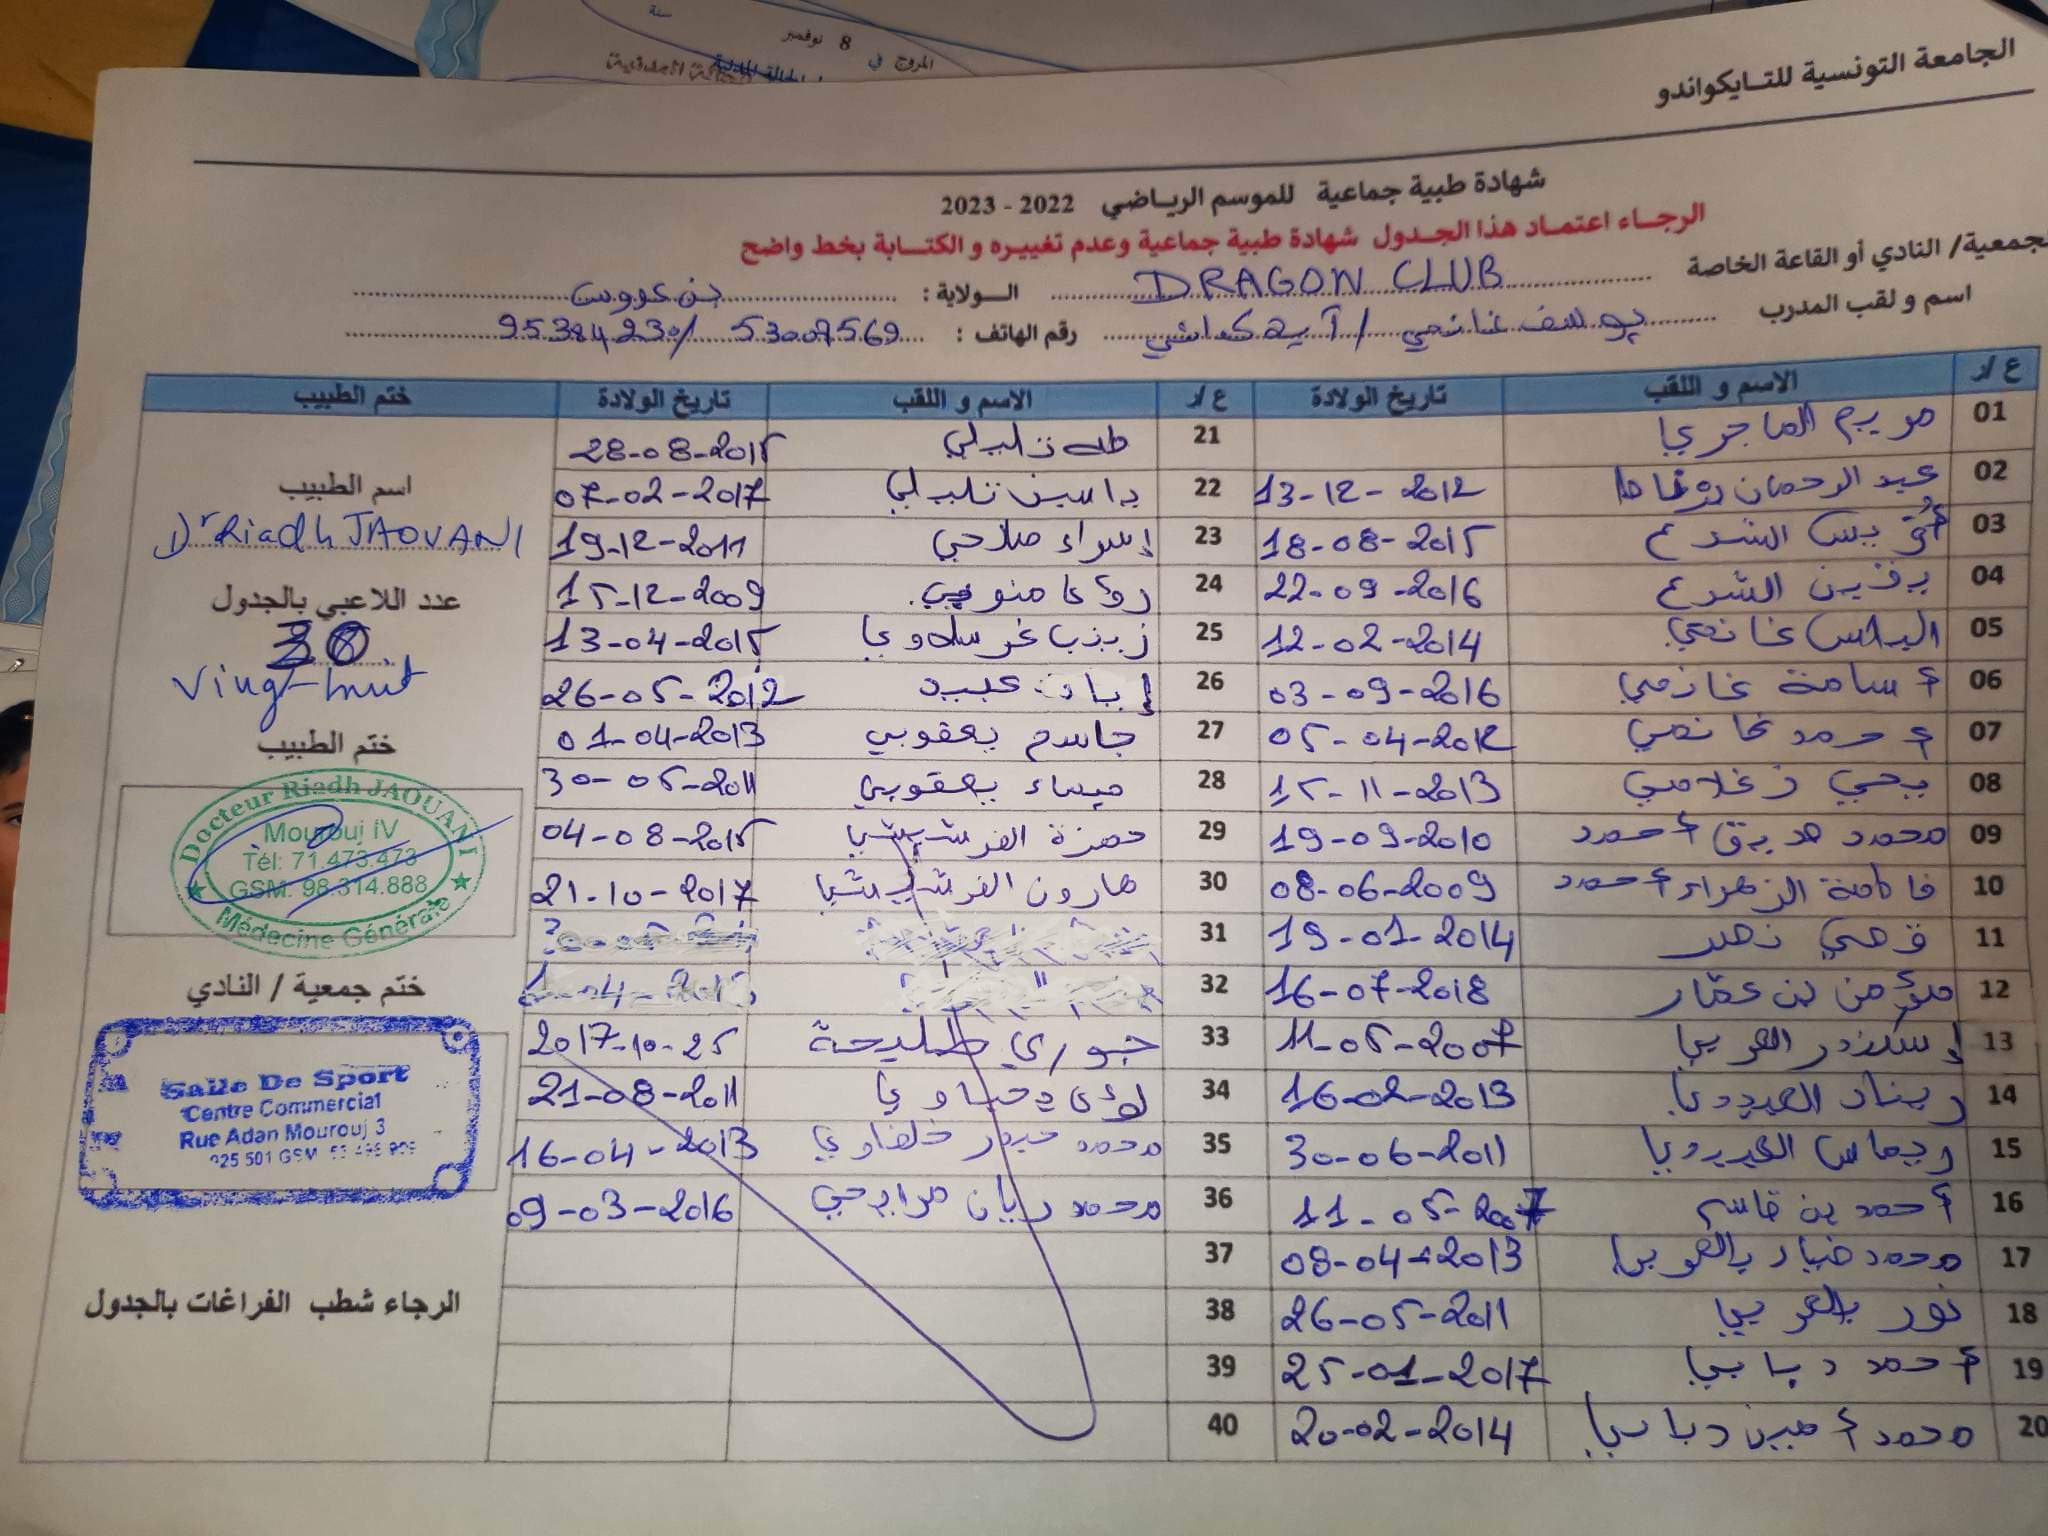 سنة
المروج في 8 نوفمبر
الجامعة التونسية للتــايكواندو
شهادة طبية جماعية للموسم الريـاضي 2022 - 2023
الرجــاء اعتمـاد هذا الجـدول شهادة طبية جماعية وعدم تغييـره و الكتــابة بخط واضح
لجمعية/ النادي أو القاعة الخاصة DRAGON CLUB الــولاية : بن عروس
اسم و لقب المدرب يوسف غانمي / آية رقم الهاتف : 53007569 / 95384230
ع /د الاسم و اللقب تاريخ الولادة ع /د الاسم و اللقب تاريخ الولادة ختم الطبيب
01 مريم الماجري
02 عبد الرحمان 13-12-2012
03 الشرع 18-08-2015
04 الشرع 22-09-2016
05 الياس غانمي 12-02-2014
06 أسامة غانمي 03-09-2016
07 أحمد غانمي 05-04-2012
08 يحي زغلامي 15-11-2013
09 محمد صديق أحمد 19-09-2010
10 فاطمة الزهراء أحمد 08-06-2009
11 قصي نصر 19-01-2014
12 مؤمن بن عمّار 16-07-2018
13 إسكندر العربي 11-05-2007
14 ريناد العيدودي 16-02-2013
15 ريماس العيدودي 30-06-2011
16 أحمد بن قاسم 11-05-2007
17 محمد ضياء بالعربي 08-04-2013
18 نور بالعربي 26-05-2011
19 أحمد دبابي 25-01-2017
20 محمد أمين دبابي 20-02-2014
21 طه تليلي 28-08-2015
22 ياسين تليلي 07-02-2017
23 إسراء صلاحي 19-12-2011
24 رؤى منوبي 15-12-2009
25 زينب غرسلاوي 13-04-2015
26 إياد عبيد 26-05-2012
27 جاسم يعقوبي 01-04-2013
28 ميساء يعقوبي 30-05-2011
29 حمزة الفرشيشي 04-08-2015
30 هارون الفرشيشي 21-10-2017
31
32
33 جوري طليحة 2017-10-25
34 لؤي يحياوي 21-08-2011
35 محمد حيدر خلفاوي 16-04-2013
36 محمد ريان مرابحي 09-03-2016
37
38
39
40
اسم الطبيب
Dr Riadh JAOUANI
عدد اللاعبي بالجدول
Vingt-huit
ختم الطبيب
Docteur Riadh JAOUANI
Mourouj IV
Tél: 71.473.473
GSM: 98.314.888
Médecine Générale
ختم جمعية / النادي
Salle De Sport
Centre Commercial
Rue Adan Mourouj 3
الرجاء شطب الفراغات بالجدول